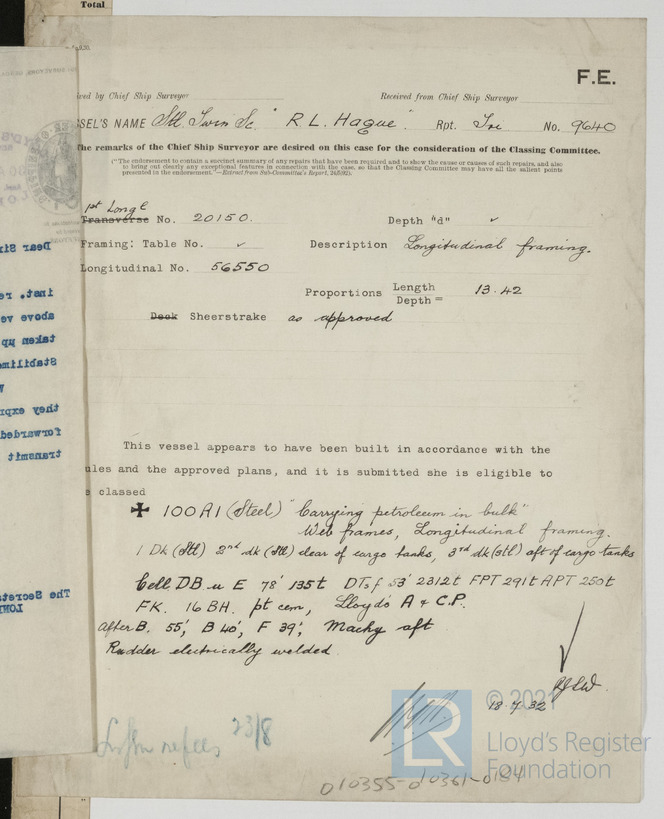 Total
F.E.
ved by Chief Ship Surveyor
Received from Chief Ship Surveyor
SEL'S NAME Stl Twin Sc "R. L. Hague". Rpt. Tri No. 9640
he remarks of the Chief Ship Surveyor are desired on this case for the consideration of the Classing Committee.
("The endorsement to contain a succinct summary of any repairs that have been required and to show the cause or causes of such repairs, and also
to bring out clearly any exceptional features in connection with the case, so that the Classing Committee may have all the salient points
presented in the endorsement."—Extract from Sub-Committee's Report,
1st Longl
Transverse No. 20150.
Depth "d" ✓
Framing: Table No. ✓ Description Longitudinal framing.
Longitudinal No. 56550
Proportions Length
Depth = 13.42
Deck Sheerstrake as approved
This vessel appears to have been built in accordance with the
ules and the approved plans, and it is submitted she is eligible to
e classed
✠ 100A1 (Steel) "Carrying petroleum in bulk"
Web frames, Longitudinal framing.
1 Dk (Stl) 2nd dk (Stl) clear of cargo tanks, 3rd dk (stl) aft of cargo tanks
Cell DB u E 78' 135t DTsf 53' 2312t FPT 291t APT 250t
FK. 16 BH. pt cem, Lloyd's A & C.P.
After B. 55', B 40', F 39', Machy aft
Rudder electrically welded
18.7.32
23/8
© 2021
LR
Lloyd's Register
Foundation
010355-010361-0184
Dear Sir
inst. re
above ve
taken up
they expr
forwarded
transmit
The Secreta